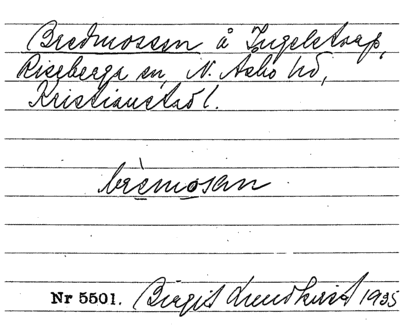 Bredmossen å Ingelstrap,
Riseberga sn, N. Asbo hd,
Kristianstad l.
brèmosen
Nr 5501. Birgit Lundkvist 1935